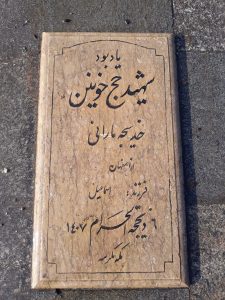 یادبود
شهید حج خونین
خدیجه بارانی
از اصفهان
فرزند: اسماعیل
۶ ذیحجه الحرام ۱۴۰۷
مکه مکرمه